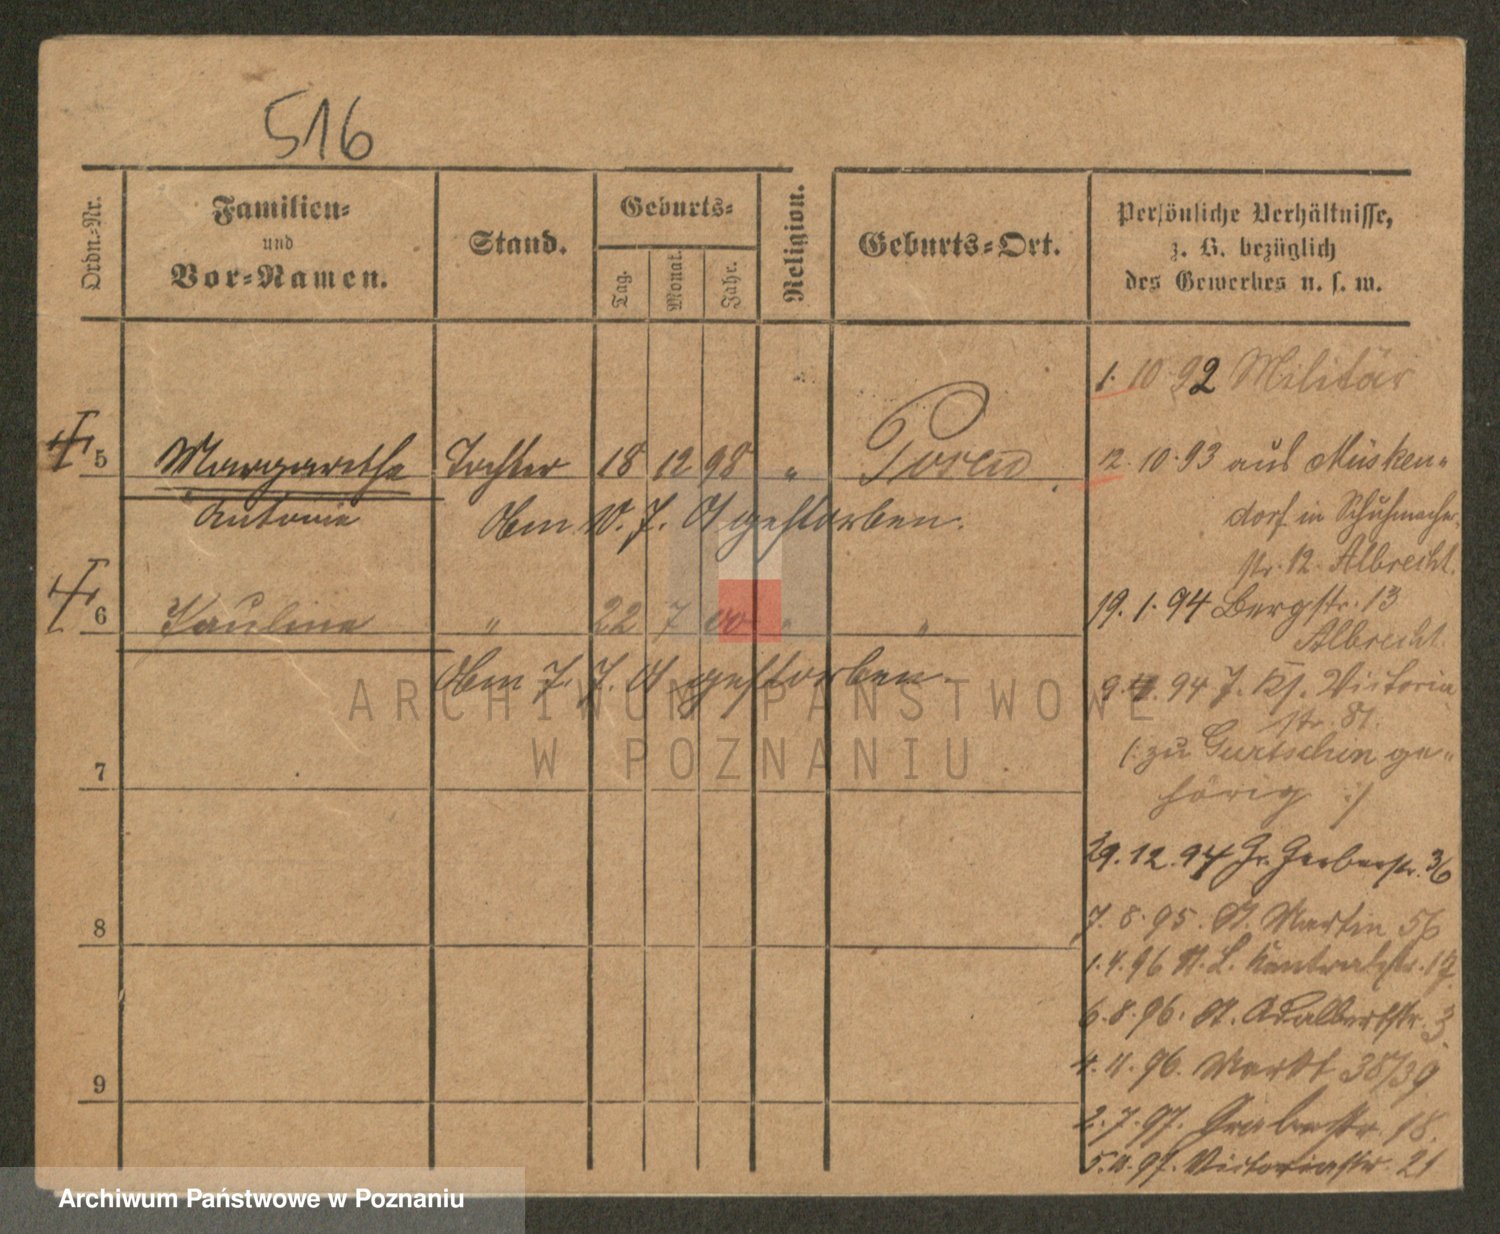 516
Ordn.-Nr.
Familien-
und
Vor-Namen.
Stand.
Geburts-
Tag.
Monat.
Jahr.
Religion.
Geburts-Ort.
Persönliche Verhältnisse,
z. B. bezüglich
des Gewerbes u. s. w.
1. 10 92 Militär
5 Margarethe Tochter 18 12 98 " Posen
Antonie
Am 10. 7. 01 gestorben.
12. 10. 93 aus Müsken-
dorf in Schuhmacher-
str. 12. Albrecht.
6 Pauline " 22 7 00 " "
Am 7. 7. 01 gestorben.
19. 1. 94 Bergstr. 13
Albrecht.
94 Victoria
str. 81.
(: zu Gurtschin ge-
hörig :)
7
29. 12. 94 Gr. Gerberstr. 36
7. 8. 95. St. Martin 56
8
1. 4. 96 St. L.
6. 8. 96. St. Adalbertstr. 3.
4. 11. 96. Markt 38/39
9
2. 7. 97. Grabenstr. 18.
5. 11. 97. Victoriastr. 21
ARCHIWUM PAŃSTWOWE
W POZNANIU
Archiwum Państwowe w Poznaniu